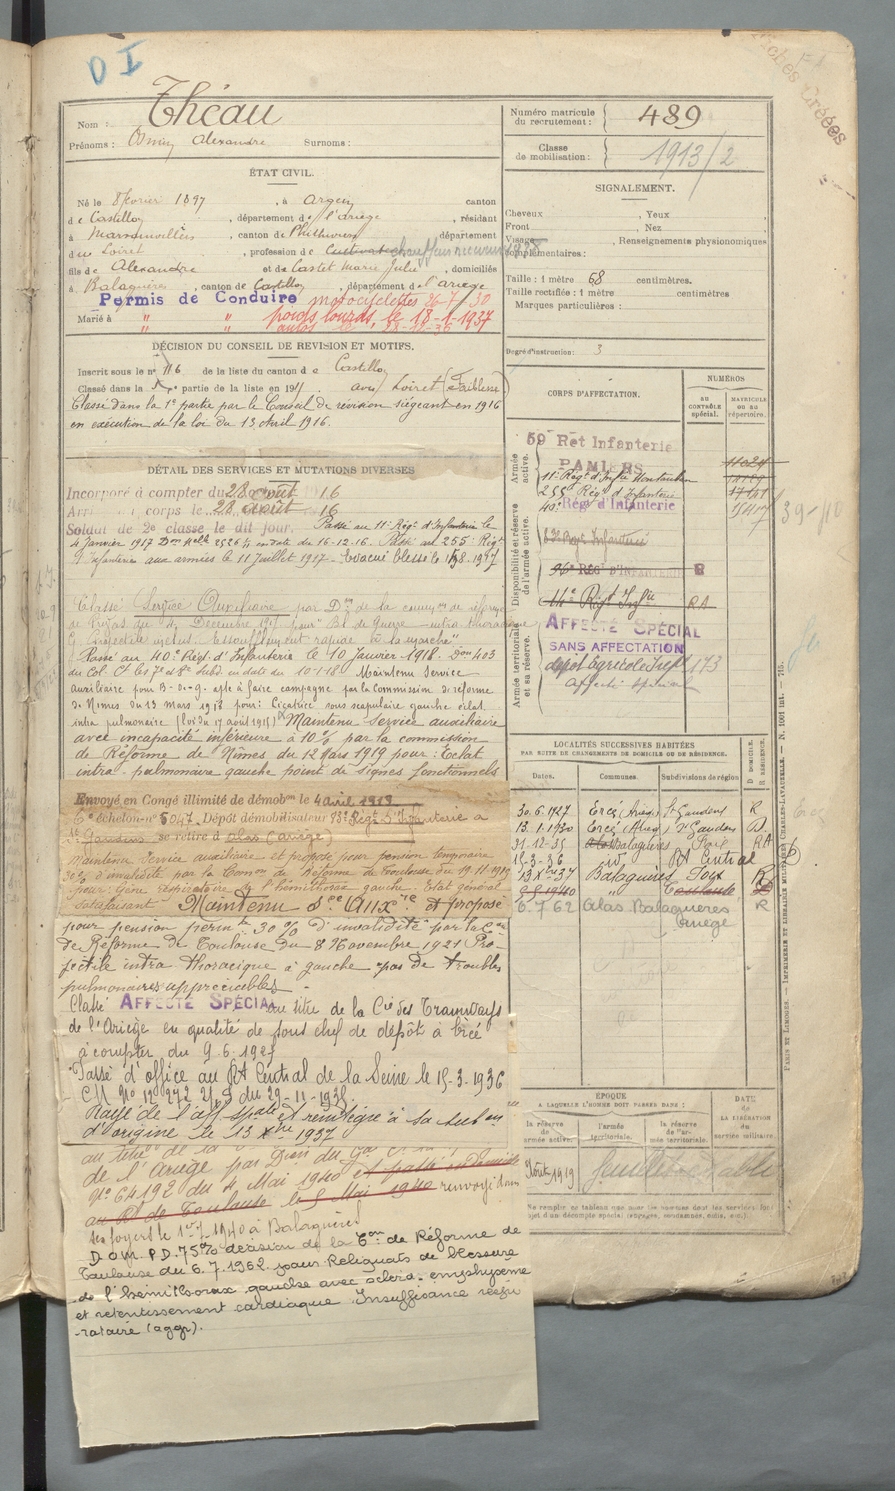 D I
Nom : Théau
Prénoms : Alexandre Surnoms :
ÉTAT CIVIL.
Né le 8 février 1897, à Argein canton
de Castillon, département de l'ariège, résidant
à, canton de département
du Loiret, profession de
fils de Alexandre et de Castet Marie Julie, domiciliés
à Balaguères, canton de Castillon, département de l'ariège
Permis de Conduire motocyclettes 26-7-30
Marié à " " poids lourds, le 18-1-1937
" " autos
DÉCISION DU CONSEIL DE REVISION ET MOTIFS.
Inscrit sous le n° 116 de la liste du canton de Castillon
Classé dans la 5e partie de la liste en 191 avis Loiret (Faiblesse)
Classé dans la 1e partie par le Conseil de révision siégeant en 1916
en exécution de la loi du 13 Avril 1916.
DÉTAIL DES SERVICES ET MUTATIONS DIVERSES
Incorporé à compter du 28 août 1916
Arrivé au corps le 28 août 16
Soldat de 2e classe le dit jour. Passé au 11e Régt d'Infanterie le
4 janvier 1917 en date du 16-12-16. Passé au 255e Régt
d'Infanterie aux armées le 11 Juillet 1917. Evacué blessé le 1917
Classé Service Auxiliaire par Don de la comm de réforme
de Privas du Décembre 1917 pour "Bl de Guerre intra thoracique
projectile inclus. Essoufflement rapide à la marche"
Passé au 40e Régt d'Infanterie le 10 Janvier 1918. Don 403
du Col. Ct les 7e et 8e Subd. en date du 10-1-18. Maintenu Service
auxiliaire pour B-de-G. apte à faire campagne par la Commission de réforme
de Nimes du 13 mars 1918 pour: Cicatrice sous scapulaire gauche éclat
intra pulmonaire (loi du 17 août 1915) Maintenu Service auxiliaire
avec incapacité inférieure à 10% par la commission
de Réforme de Nîmes du 12 Mars 1919 pour : Eclat
intra-pulmonaire gauche point de signes fonctionnels
Envoyé en Congé illimité de démobon le 4 avril 1919
6e échelon - n° 5047. Dépôt démobilisateur Régt d'Infanterie à
St Gaudens se retire à alas (ariège)
Maintenu Service auxiliaire et proposé pour pension temporaire
30% d'invalidité par la Comon de Réforme de Toulouse du 19.11.1919
pour: Gêne respiratoire de l'hémithorax gauche. Etat général
satisfaisant Maintenu Sce Auxre et proposé
pour pension permte 30% d'invalidité par la Con
de Réforme de Toulouse du 8 Novembre 1921 Pro-
jectile intra thoracique à gauche pas de troubles
pulmonaires appréciables
Classé AFFECTÉ SPÉCIAL au titre de la Cie des Tramways
de l'Ariège en qualité de sous chef de dépôt à Ercé
à compter du 9.6.1927
Passé d'office au RA Central de la Seine le 15-3-1936
Rayé de l'aff spale et réintégré à sa subon
d'origine le 13 Xbre 1937
au titre de la
de l'Ariège par Dion du Gal
N° 64192 du 4 Mai 1940 et passé
au RA de Toulouse le 5 Mai 1940 renvoyé dans
ses foyers le 1940 à Balaguères
D.om. P.D. 75% décision de la Con de Réforme de
Toulouse du 6.7.1962 pour Reliquats de blessure
de l'hémithorax gauche avec scléro-emphysème
et retentissement cardiaque. Insuffisance respi-
-ratoire (aggr).
Numéro matricule du recrutement : 489
Classe de mobilisation : 1913/2
SIGNALEMENT.
Cheveux , Yeux
Front , Nez
Visage , Renseignements physionomiques
complémentaires :
Taille : 1 mètre 68 centimètres.
Taille rectifiée : 1 mètre centimètres
Marques particulières :
Degré d'instruction : 3
CORPS D'AFFECTATION.
NUMÉROS
AU CONTRÔLE SPÉCIAL.
MATRICULE OU AU RÉPERTOIRE.
Armée active.
59e Régt Infanterie
PAMIERS 11024
11e Régt d'Infie Montauban
255 Régt d'Infanterie
40e Régt d'Infanterie 5417
Disponibilité et réserve de l'armée active.
96e RÉGt D'INFANTERIE R
14e Régt Infie RA
Armée territoriale et sa réserve.
AFFECTÉ SPÉCIAL
SANS AFFECTATION
173
Affecté spécial
LOCALITÉS SUCCESSIVES HABITÉES
PAR SUITE DE CHANGEMENTS DE DOMICILE OU DE RÉSIDENCE.
Dates. Communes. Subdivisions de région D DOMICILE. R RÉSIDENCE.
30.6.1927 Ercé (Ariège) St Gaudens R
13.1.1930 Ercé (Arieg) St Gaudens D.
31-12-35 Balaguères Foix RA
15-3-36 RA Central D
13 Xbre 37 Balaguères Foix R
5-5-1940 " Toulouse
6.7.62 Alas Balaguères R
Ariège
ÉPOQUE
A LAQUELLE L'HOMME DOIT PASSER DANS :
DATE DE LA LIBÉRATION DU SERVICE MILITAIRE.
la réserve de l'armée active. l'armée territoriale. la réserve de l'armée territoriale.
1919
Ne remplir ce tableau que pour les hommes dont les services font l'objet d'un décompte spécial (engagés, condamnés, omis, etc.).
PARIS ET LIMOGES. — IMPRIMERIE ET LIBRAIRIE MILITAIRES CHARLES-LAVAUZELLE. — N. 1001 int. — 7-15.